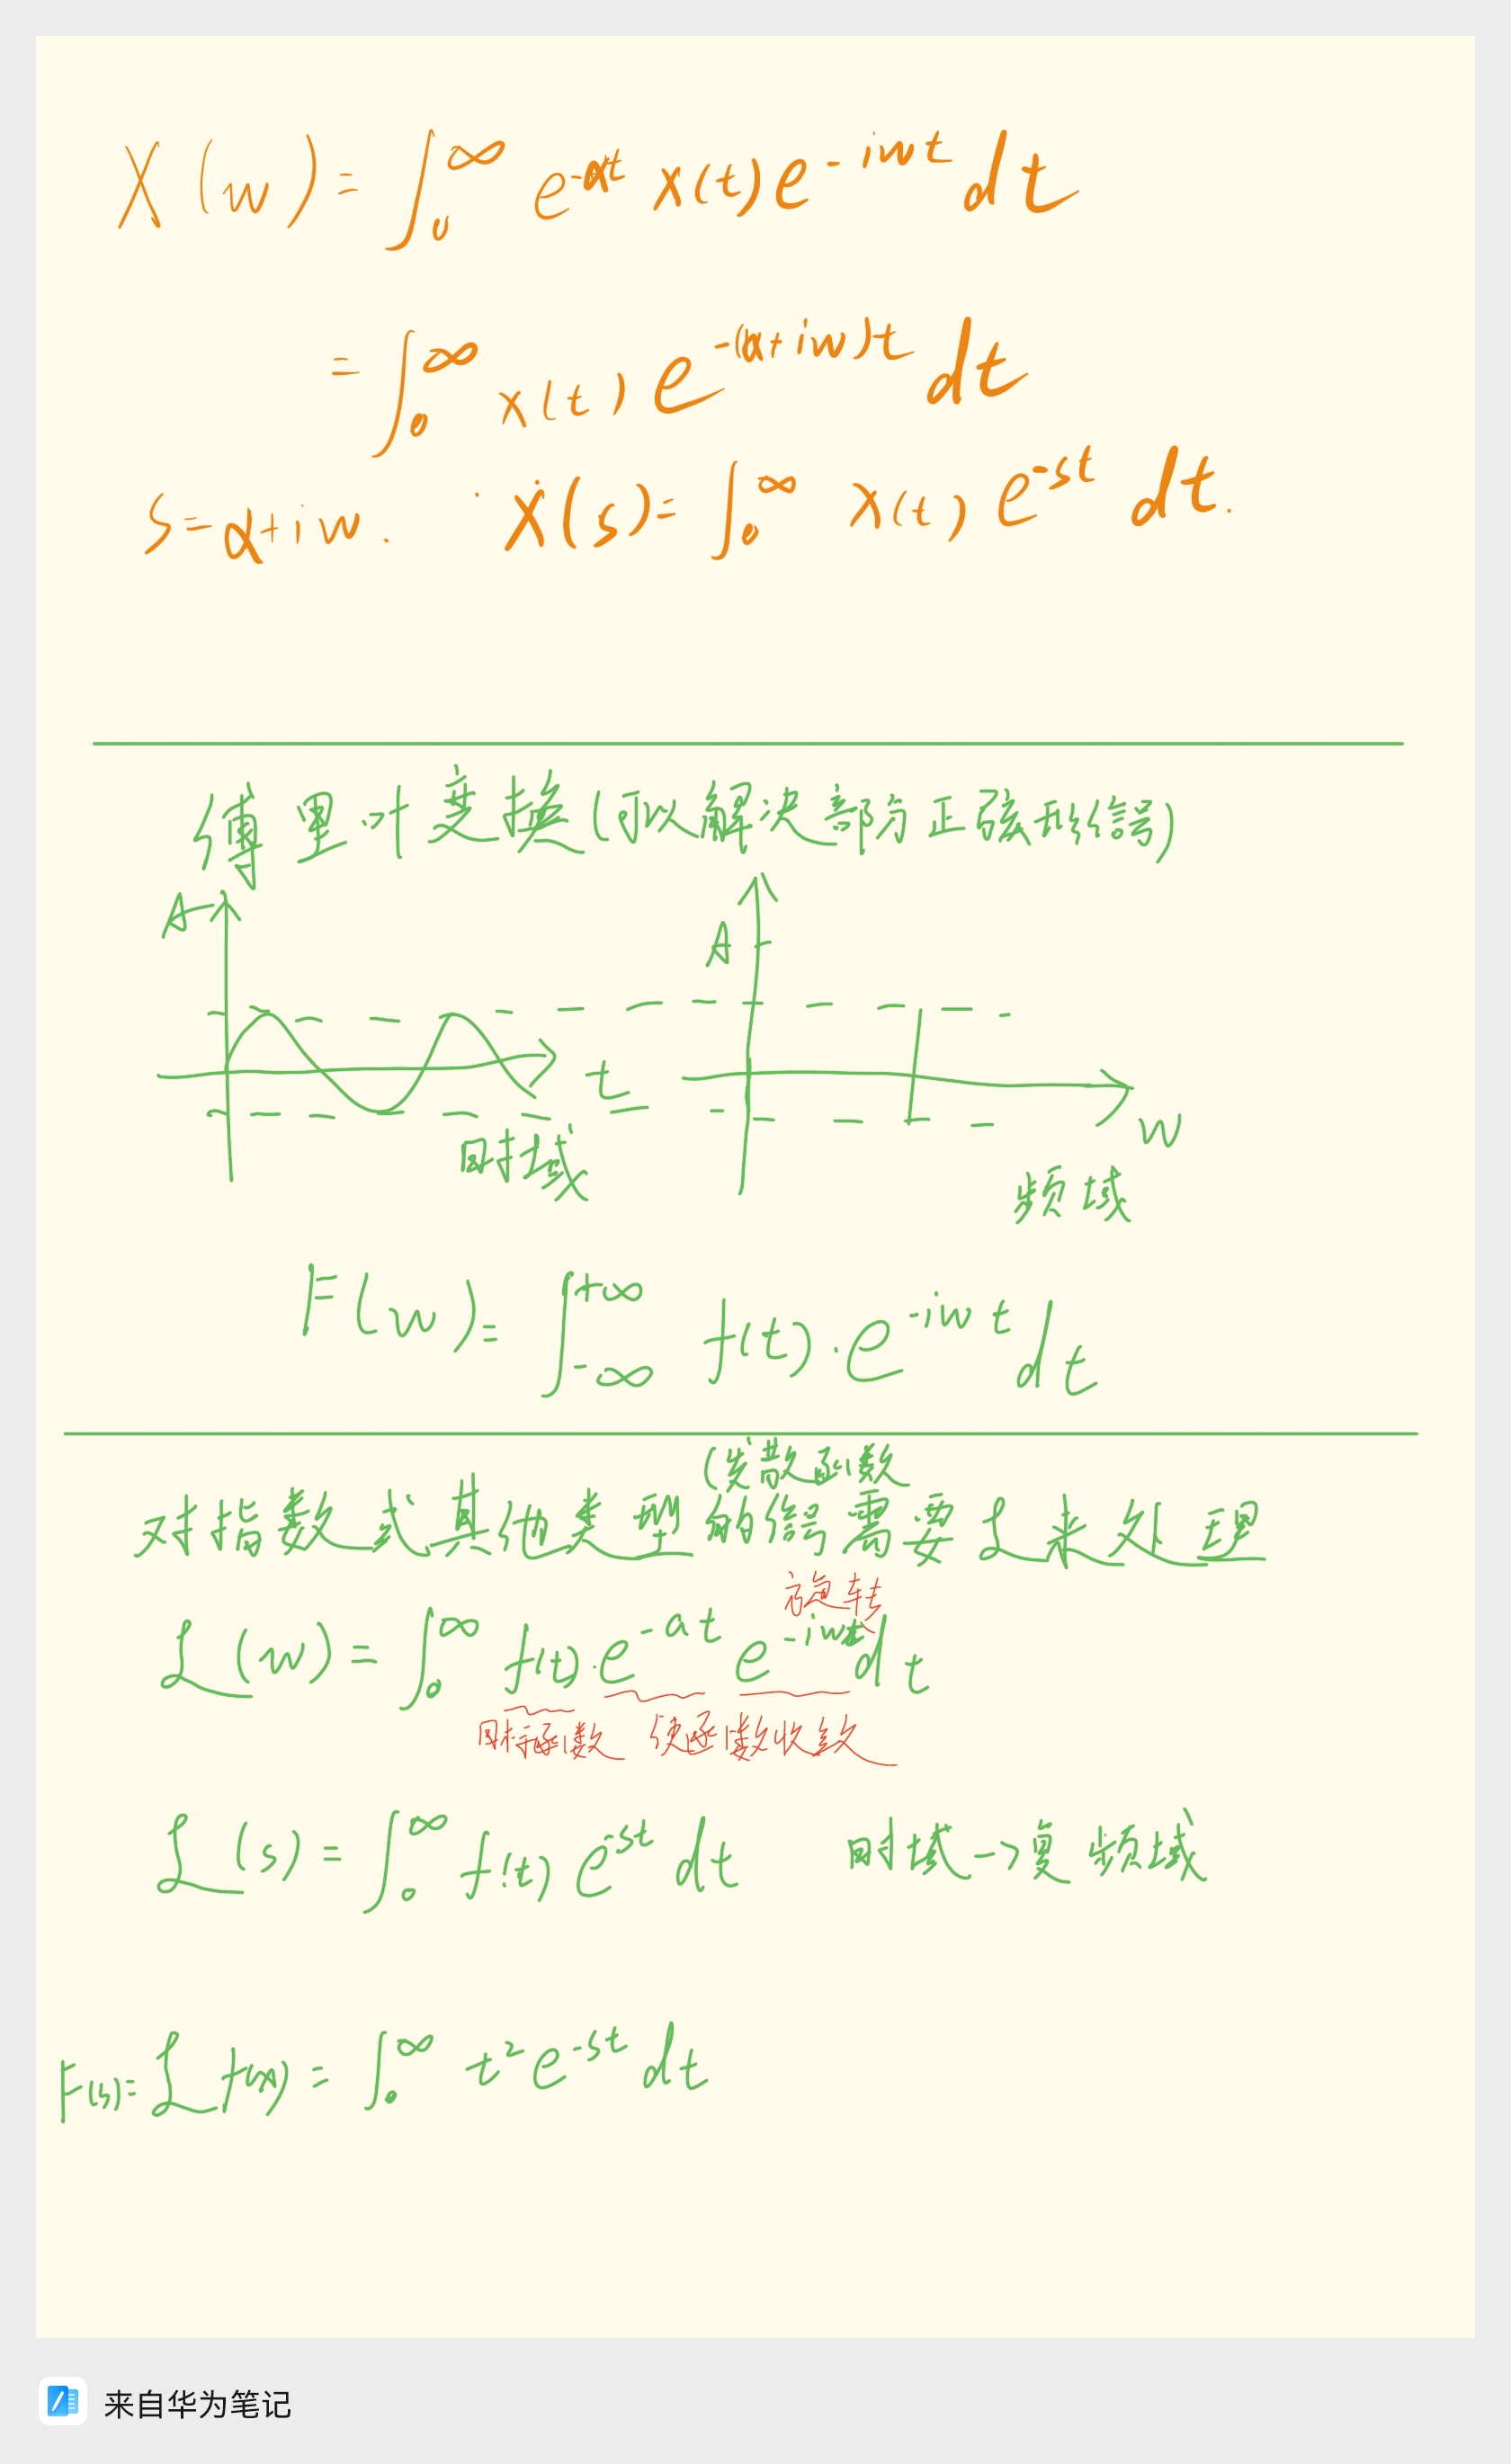 X(w) = ∫₀^∞ e^{-αt} x(t) e^{-iwt} dt
= ∫₀^∞ x(t) e^{-(α+iw)t} dt
s=α+iw. X(s) = ∫₀^∞ x(t) e^{-st} dt.
傅里叶变换(可以解决部分正弦函数)
A A
t w
时域 频域
F(w) = ∫_{-∞}^{+∞} f(t)·e^{-iwt} dt
(发散函数
对指数或其他类型 需要 L 来处理
旋转
L(w) = ∫₀^∞ f(t)·e^{-αt} e^{-iwt} dt
目标函数 使函数收敛
L(s) = ∫₀^∞ f(t) e^{-st} dt 时域→复频域
F(s)= L f(t) = ∫₀^∞ t² e^{-st} dt
来自华为笔记